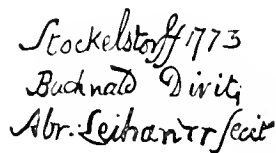 Stockelstorff 1773
Buchnald Direct;
Abr: Leihamer fecit